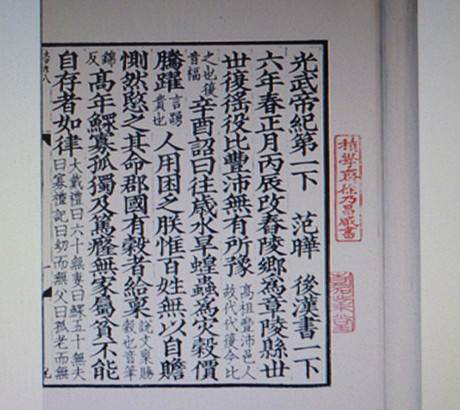 積學齋徐乃昌藏書
光武帝紀第一下　范曄　後漢書一下
六年春正月丙辰改舂陵鄉為章陵縣世
世復徭役比豐沛無有所豫高祖豐沛邑人故代代復今比
之也復音福辛酉詔曰往歲水旱蝗蟲為灾穀價
騰躍言踴貴也人用困乏朕惟百姓無以自贍
惻然愍之其命郡國有穀者給稟說文稟賜穀也音筆
錦反高年鰥寡孤獨及篤癃無家屬貧不能
自存者如律大戴禮曰六十無妻曰鰥五十無夫曰寡禮記曰幼而無父曰孤老而無